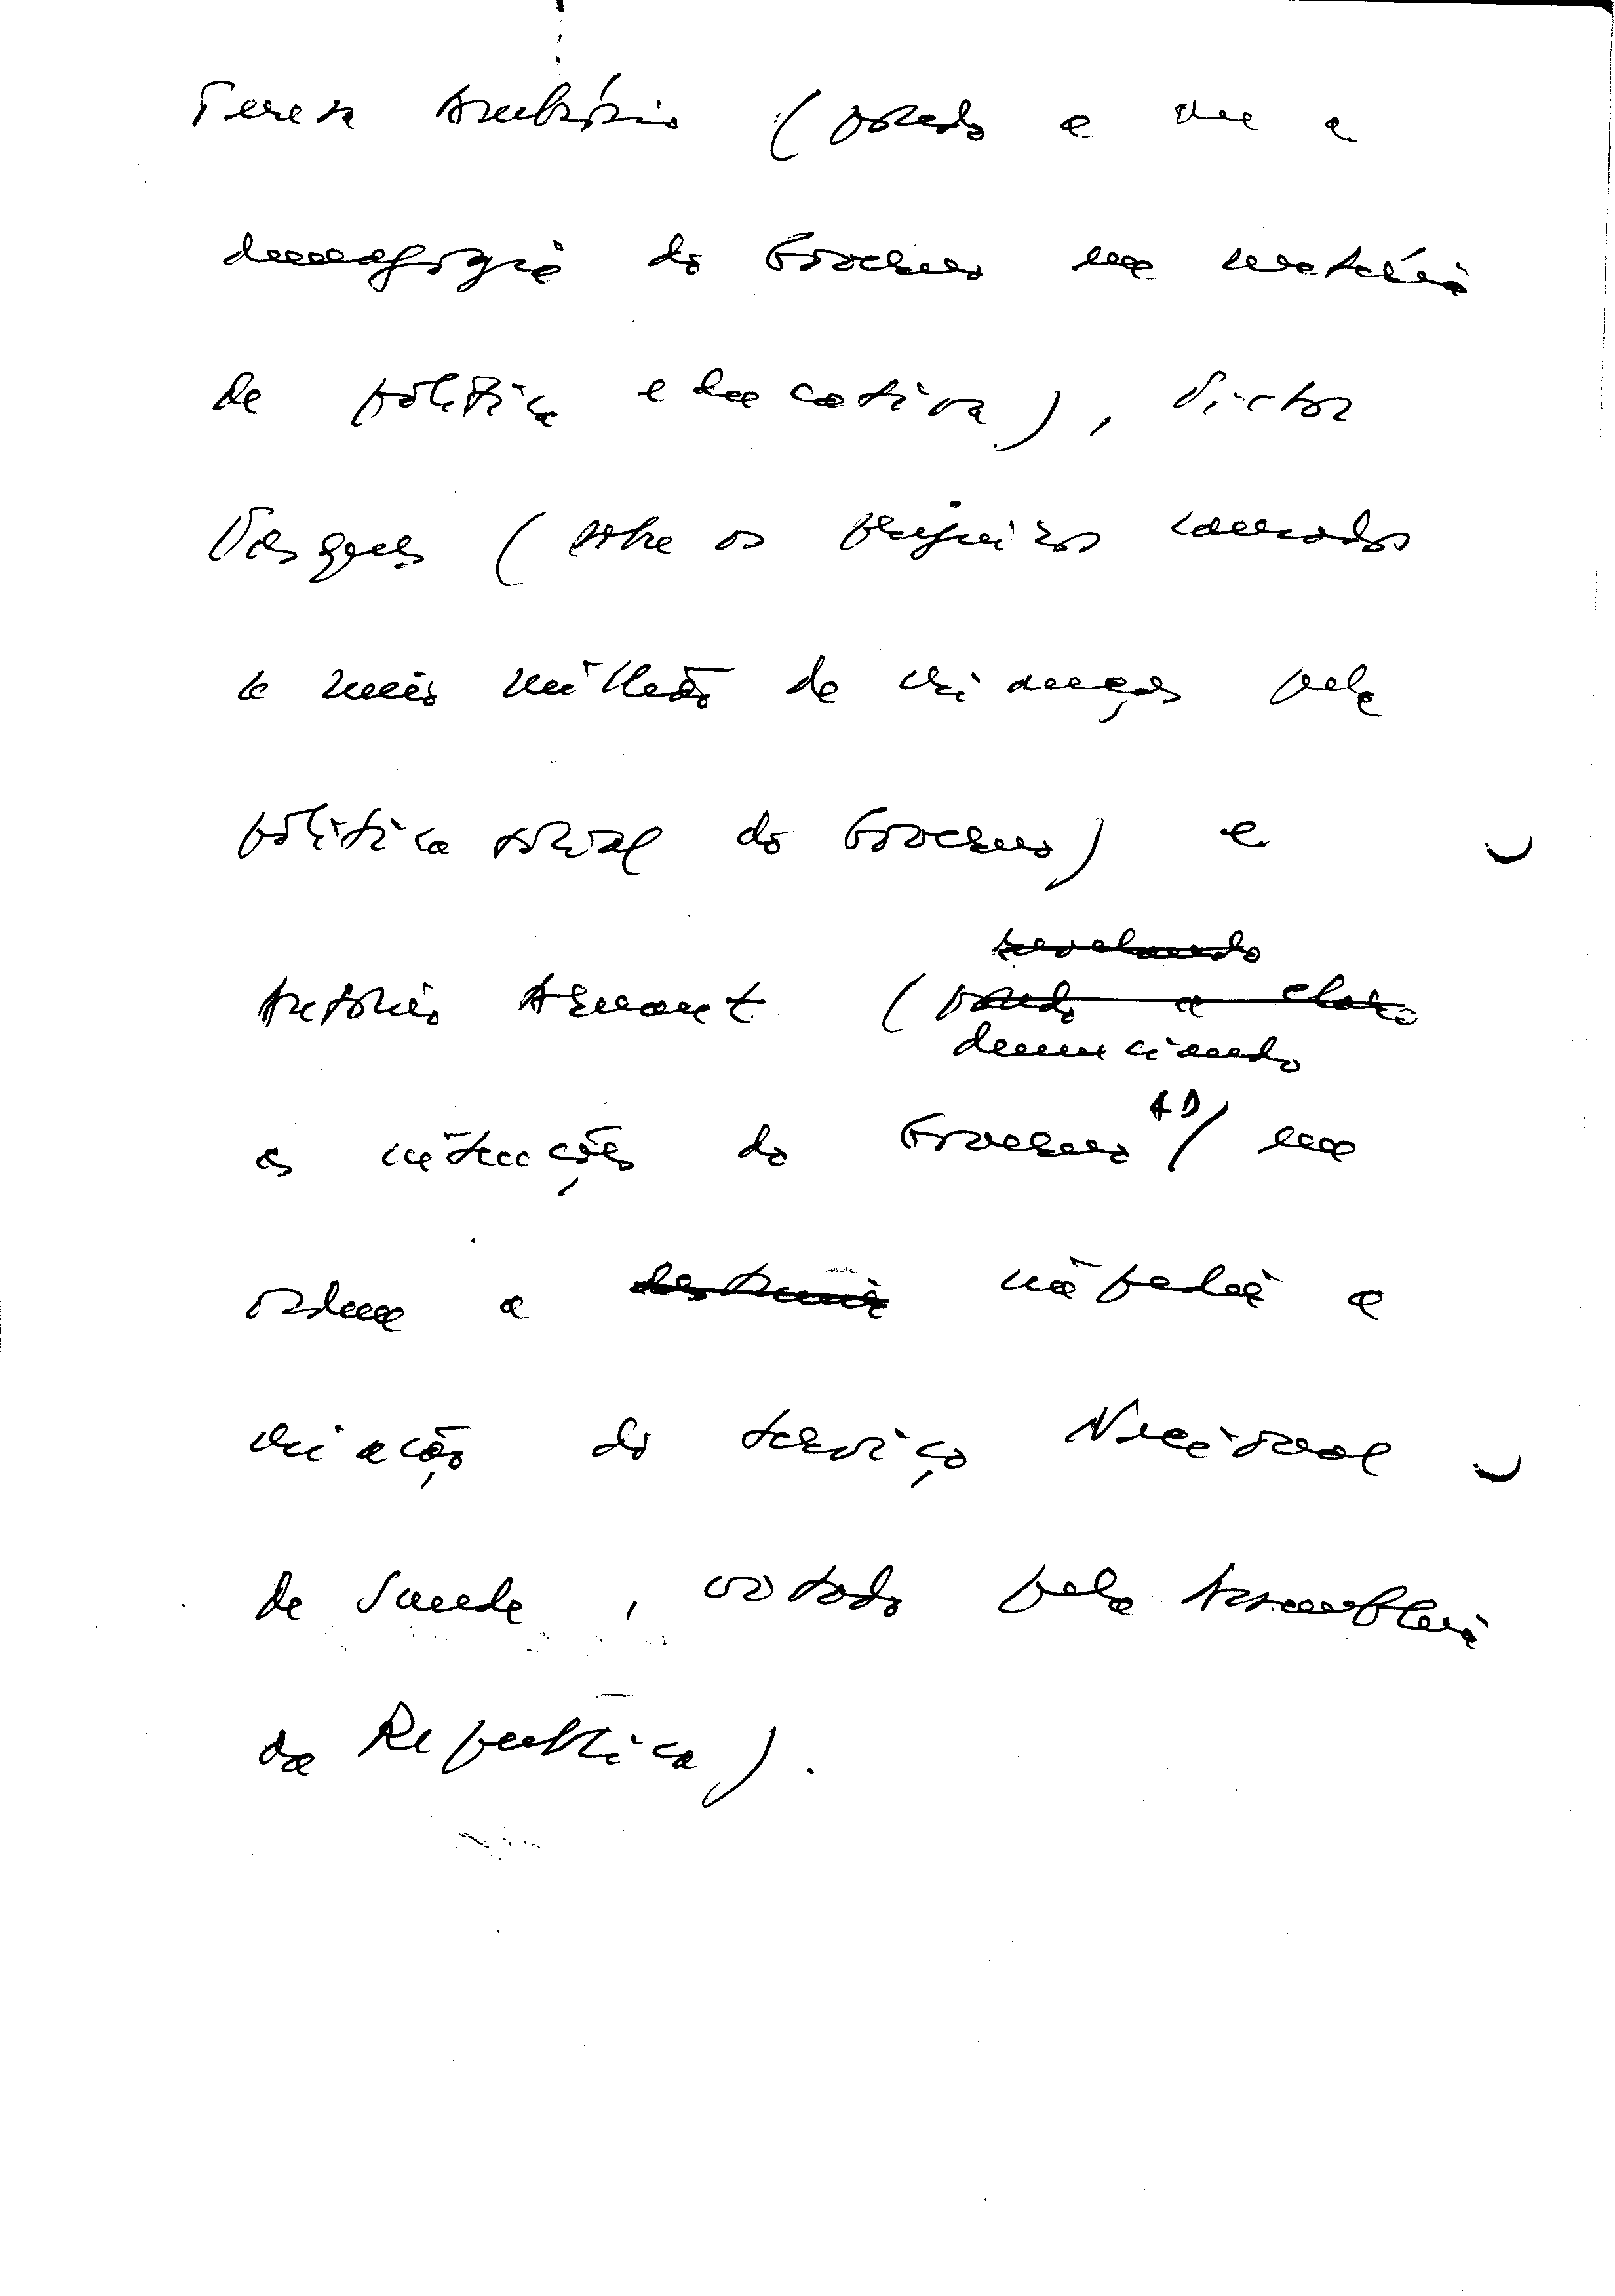 Teresa Ambrósio (pondo a nu a
demagogia do Governo em matéria
de política educativa), Victor
Vasques (sobre os prejuízos causados
a meio milhão de crianças pela
política social do Governo) e
revelando
António Arnaut (pondo a claro
denunciando
as intenções do Governo AD/ em
ordem a destruir impedir a
criação do Serviço Nacional
de Saude, votado pela Assembleia
da Republica).